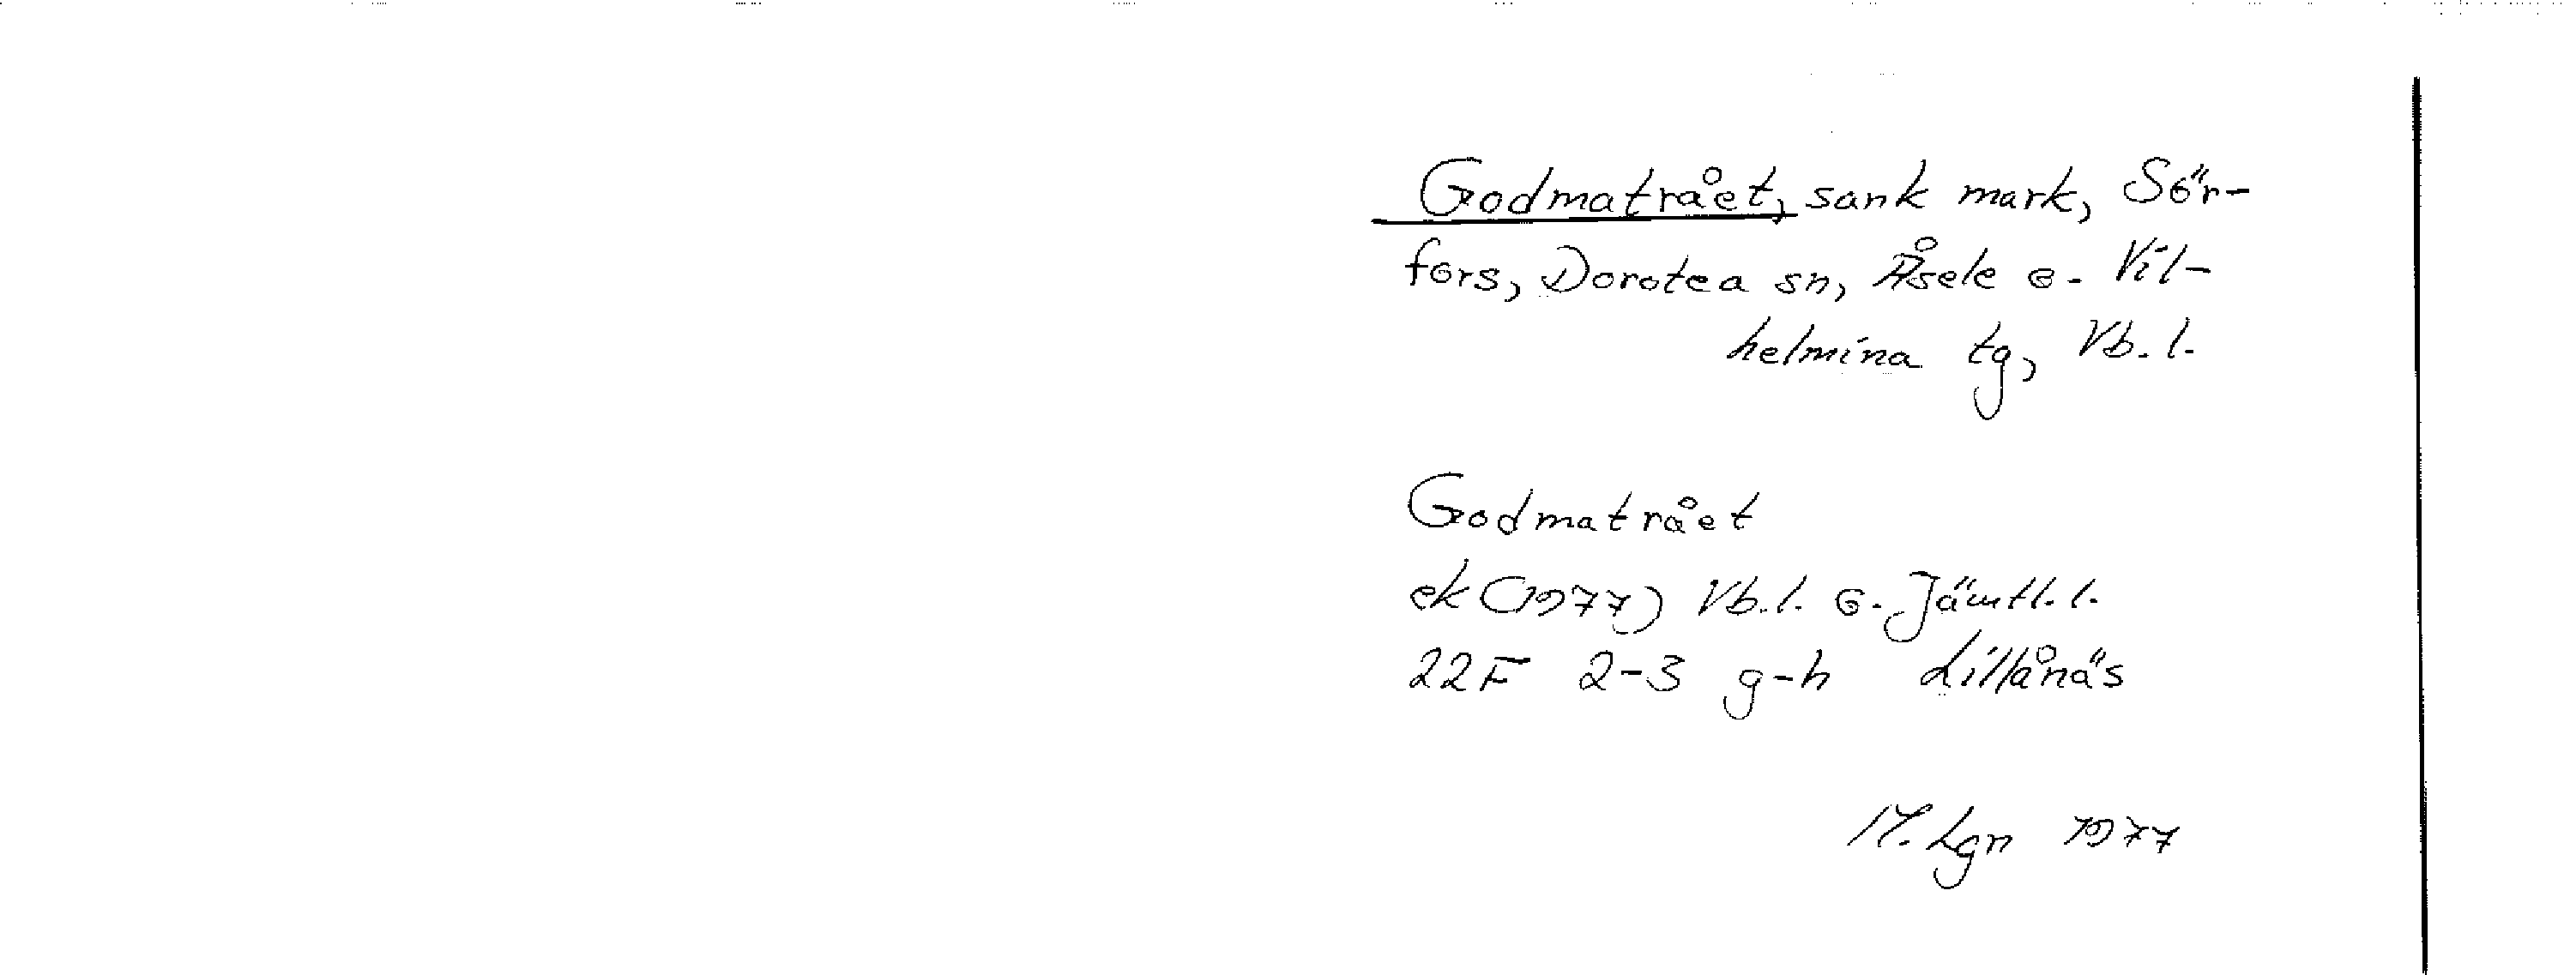 Godmatrået, sank mark, Sör-
fors, Dorotea sn, Åsele o. Vil-
helmina tg, Vb. l.
Godmatrået
ek (1977) Vb.l. o. Jämtl. l.
22F 2-3 g-h Lillånäs
M. Lgn 1977